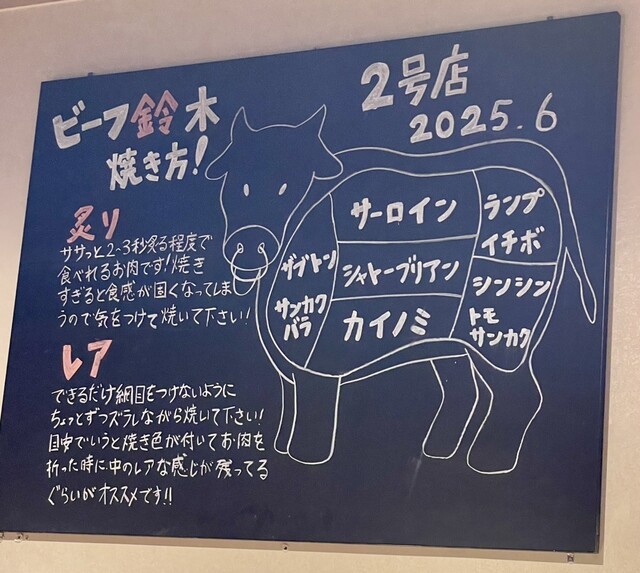 ビーフ鈴木
焼き方!
2号店
2025.6
炙り
ササっと2~3秒炙る程度で
食べれるお肉です!焼き
すぎると食感が固くなってしま
うので気をつけて焼いて下さい!
レア
できるだけ網目をつけないように
ちょっとずつズラしながら焼いて下さい!
目安でいうと焼き色が付いてお肉を
折った時に中のレアな感じが残ってる
ぐらいがオススメです!!
サーロイン
ランプ
イチボ
ザブトン
シャトーブリアン
シンシン
サンカク
バラ
カイノミ
トモ
サンカク